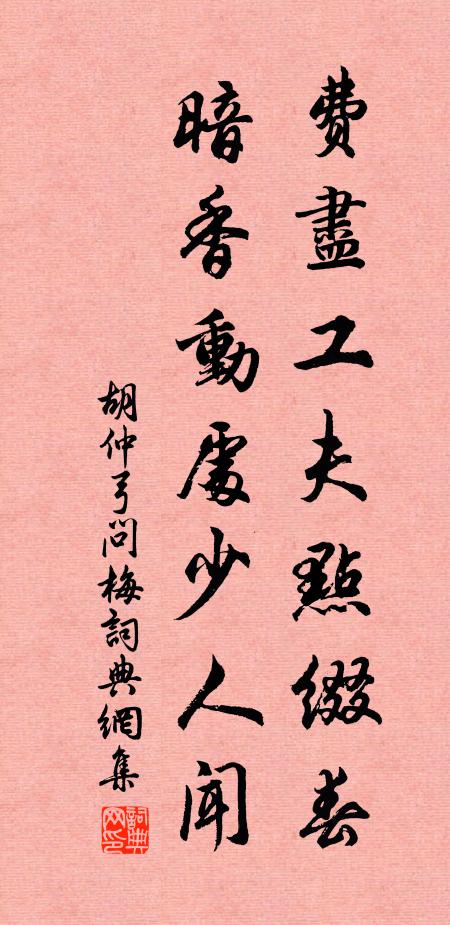 費盡工夫點綴春
暗香動處少人聞
胡仲弓問梅詞典網集
詞典網印